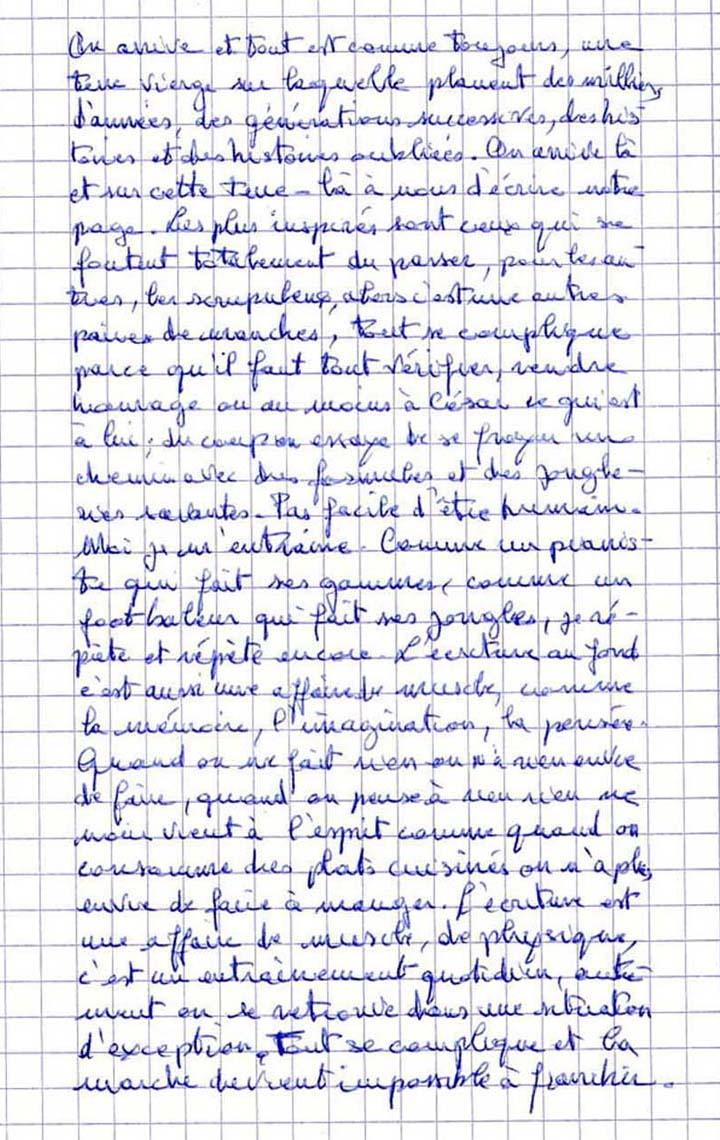 On arrive et tout est comme toujours, une
terre vierge sur laquelle planent des milliers
d'années, des générations successives, des his
toires et des histoires oubliées. On arrive là
et sur cette terre-là à nous d'écrire notre
page. Les plus inspirés sont ceux qui se
foutent totalement du passer, pour les au
tres, les scrupuleux, alors c'est une autres
paires de manches, tout se complique
parce qu'il faut tout vérifier, rendre
hommage ou au moins à César ce qui est
à lui ; du coup on essaye de se frayer un
chemin avec des formules et des jongle-
ries savantes. Pas facile d'être humain.
Moi je m'entraine. Comme un pianis-
te qui fait ses gammes, comme un
footballeur qui fait ses jongles, je ré-
pète et répète encore. L'écriture au fond
c'est aussi une affaire de muscle, comme
la mémoire, l'imagination, la pensée.
Quand on ne fait rien on n'a rien envie
de faire, quand on pense à rien rien ne
nous vient à l'esprit comme quand on
consomme des plats cuisinés on n'a plus
envie de faire à manger. L'écriture est
une affaire de muscle, de physique,
c'est un entraînement quotidien, autre
ment on se retrouve dans une situation
d'exception. Tout se complique et la
marche devient impossible à franchir.